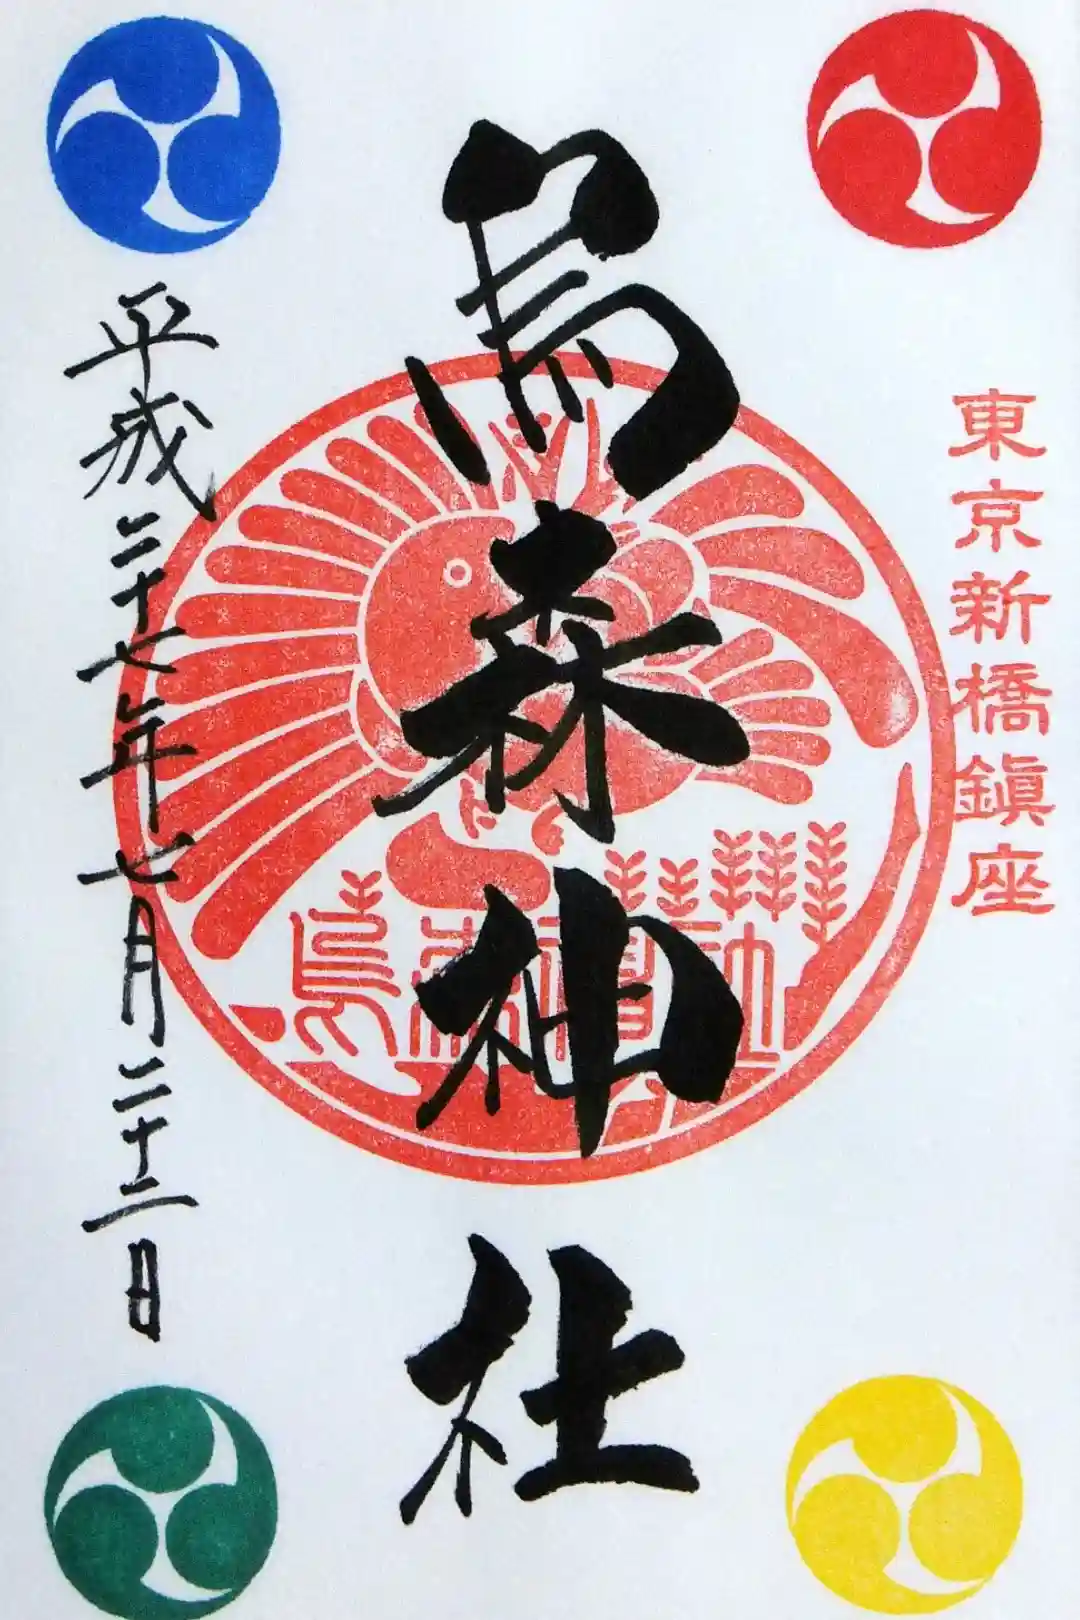 東京新橋鎮座
烏森神社
烏森神社
平成二十七年七月二十二日